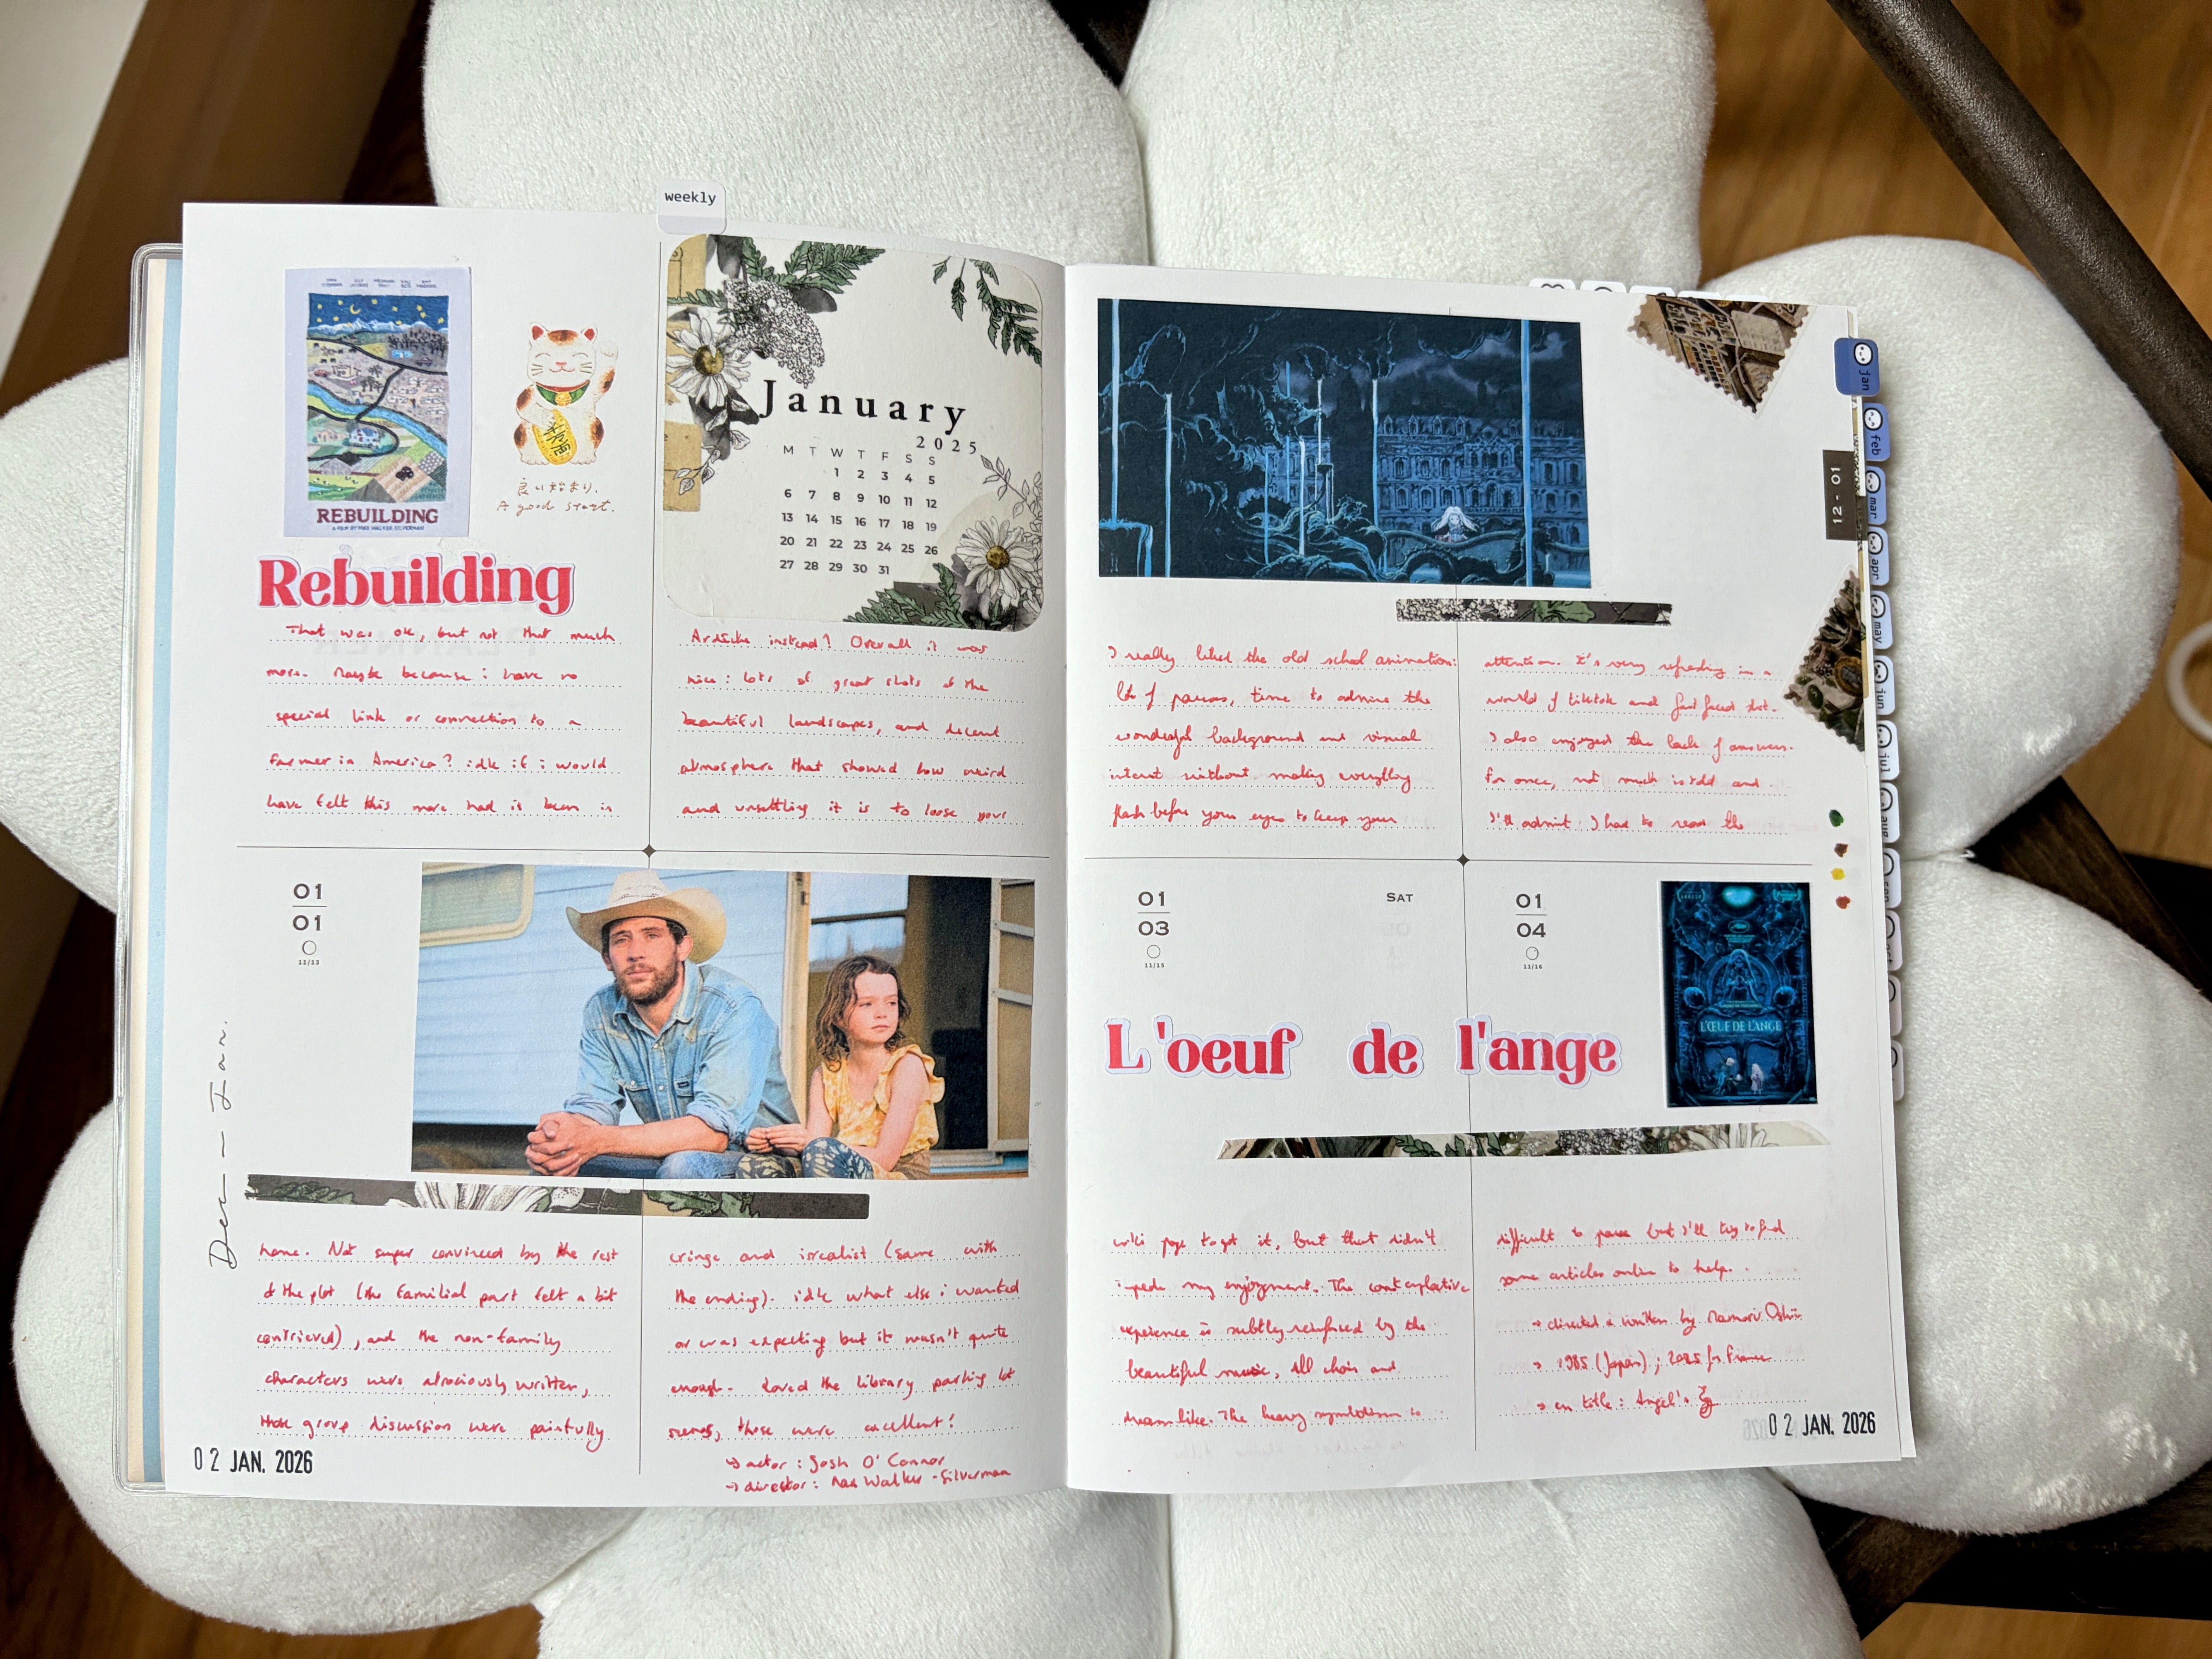 weekly
REBUILDING
A FILM BY MAX WALKER-SILVERMAN
良い始まり.
A good start.
Rebuilding
That was ok, but not that much
more. Maybe because i have no
special link or connection to a
farmer in America? idk if i would
have felt this more had it been in
January
2025
M T W T F S S
1 2 3 4 5
6 7 8 9 10 11 12
13 14 15 16 17 18 19
20 21 22 23 24 25 26
27 28 29 30 31
Ardèche instead? Overall it was
nice: lots of great shots of the
beautiful landscapes, and decent
atmosphere that showed how weird
and unsettling it is to loose your
01
01
11/13
Dec — Jan.
home. Not super convinced by the rest
of the plot (the familial part felt a bit
contrieved), and the non-family
characters were atrociously written,
group discussion were painfully
02 JAN. 2026
cringe and irrealist (same with
the ending). idk what else i wanted
or was expecting but it wasn't quite
enough. Loved the library parking lot
scenes, those were excellent!
→ actor: Josh O'Connor
→ director: Max Walker-Silverman
I really liked the old school animation:
lots of pauses, time to admire the
wonderful background and visual
interest without making everything
flash before your eyes to keep your
attention. It's very refreshing in a
world of tiktok and fast paced shit.
I also enjoyed the lack of answers.
For once, not much is told and
I'll admit I had to read the
01
03
11/15
SAT
01
04
11/16
L'oeuf de l'ange
L'ŒUF DE L'ANGE
wiki page to get it, but that didn't
impede my enjoyment. The contemplative
experience is subtly reinforced by the
beautiful music, all choir and
dreamlike. The heavy symbolism is
difficult to parse but I'll try to find
some articles online to help.
→ directed & written by Mamoru Oshii
→ 1985 (Japan); 2025 for France
→ en title: Angel's
02 JAN. 2026
12 - 01
jan
feb
mar
apr
may
jun
jul
aug
sep
oct